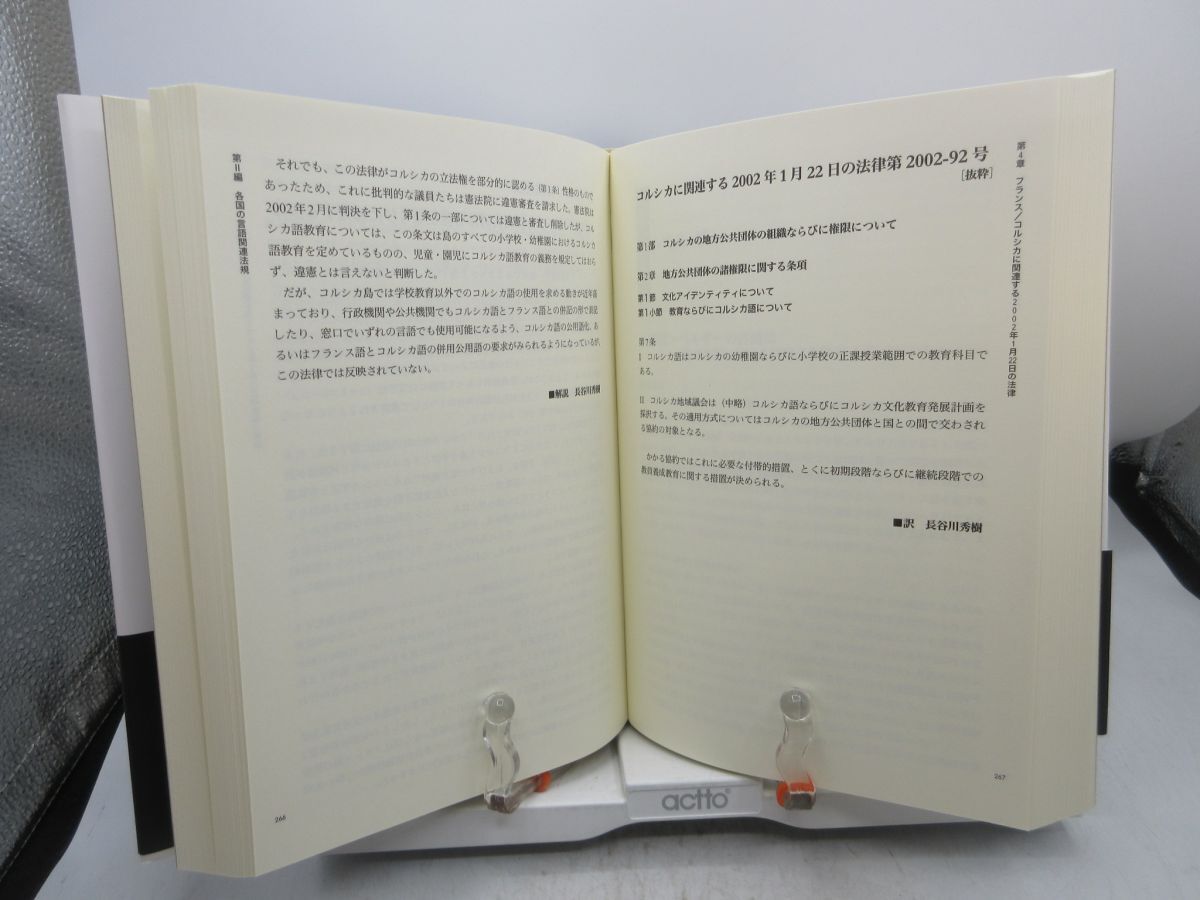 第II編　各国の言語関連法規
それでも、この法律がコルシカの立法権を部分的に認める（第1条）性格のもので
あったため、これに批判的な議員たちは憲法院に違憲審査を請求した。憲法院は
2002年2月に判決を下し、第1条の一部については違憲と審査し削除したが、コル
シカ語教育については、この条文は島のすべての小学校・幼稚園におけるコルシカ
語教育を定めているものの、児童・園児にコルシカ語教育の義務を規定してはおら
ず、違憲とは言えないと判断した。
だが、コルシカ島では学校教育以外でのコルシカ語の使用を求める動きが近年高
まっており、行政機関や公共機関でもコルシカ語とフランス語との併記の形で表記
したり、窓口でいずれの言語でも使用可能になるよう、コルシカ語の公用語化、あ
るいはフランス語とコルシカ語の併用公用語の要求がみられるようになっているが、
この法律では反映されていない。
■解説　長谷川秀樹
266
第4章　フランス／コルシカに関連する2002年1月22日の法律
コルシカに関連する2002年1月22日の法律第2002-92号
［抜粋］
第1部　コルシカの地方公共団体の組織ならびに権限について
第2章　地方公共団体の諸権限に関する条項
第1節　文化アイデンティティについて
第1小節　教育ならびにコルシカ語について
第7条
I　コルシカ語はコルシカの幼稚園ならびに小学校の正課授業範囲での教育科目で
ある。
II　コルシカ地域議会は（中略）コルシカ語ならびにコルシカ文化教育発展計画を
採択する。その適用方式についてはコルシカの地方公共団体と国との間で交わされ
る協約の対象となる。
かかる協約ではこれに必要な付帯的措置、とくに初期段階ならびに継続段階での
教員養成教育に関する措置が決められる。
■訳　長谷川秀樹
267
actto